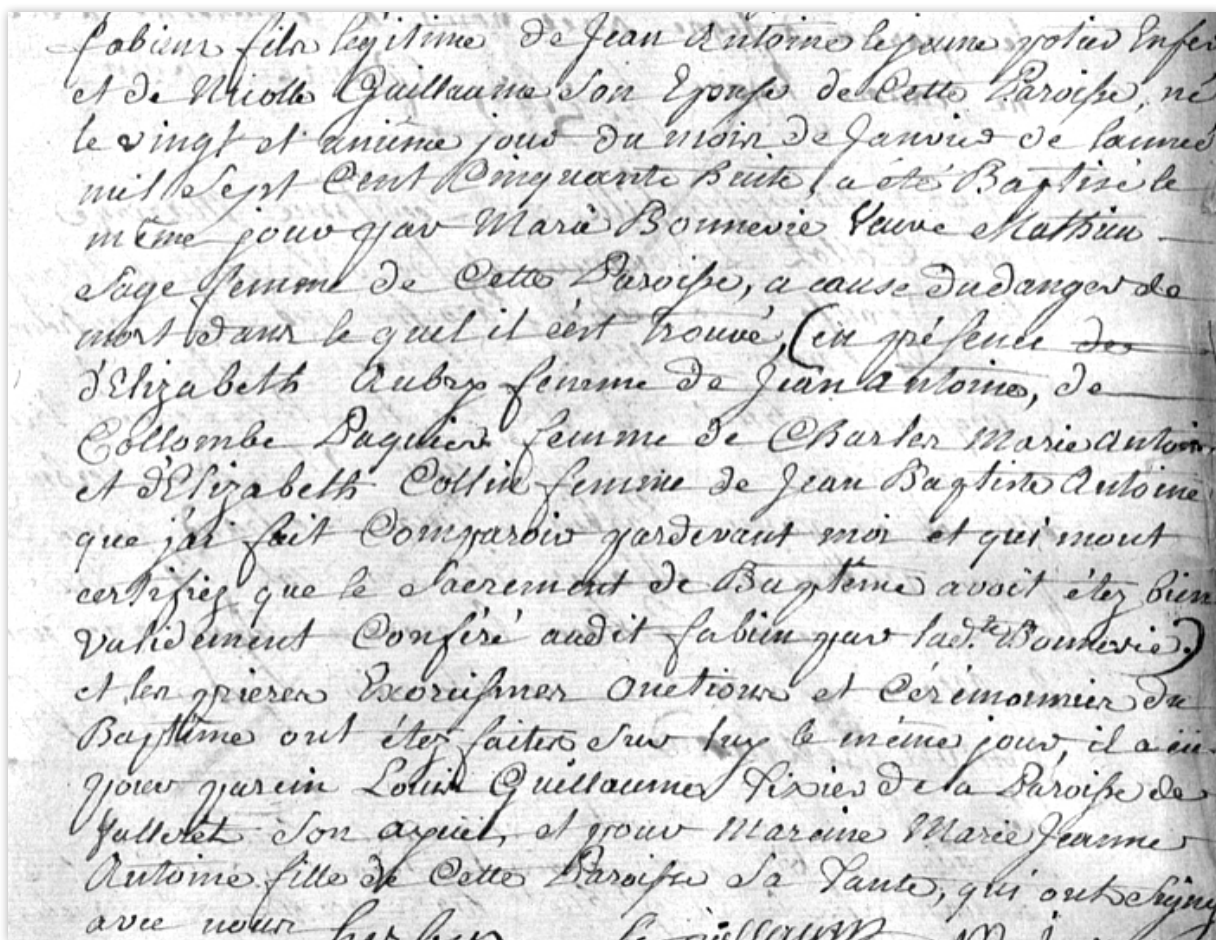 fabien fils légitime de Jean Antoine le jeune potier
et de Nicolle Guillaume son Epouse de Cette Paroisse, né
le vingt et unieme jour du mois de Janvier de lannée
mil sept Cent Cinquante huite, a été Baptisé le
même jour par Marie Bonnevie Veuve Mathieu
sage femme de Cette Paroisse, a cause du danger de
mort dans le quel il s'est trouvé, (en présence de
d'Elizabeth Aubry femme de Jean Antoine, de
Collombe Paquier femme de Charles Marie Antoine
et d'Elizabeth Collin femme de Jean Baptiste Antoine
que j'ai fait Comparoir pardevant moi et qui mont
certifiez que le Sacrement de Baptême avoit étez bien
validement Conféré audit fabien par lad.te Bonnevie)
et les prieres Exorcismes Onctions et Cérémonnies du
Baptême ont étez faites sur luy le même jour, il a eu
pour parein Louis Guillaume Tixier de la Paroisse de
Valleret son ayeul, et pour Mareine Marie Jeanne
Antoine fille de Cette Paroisse sa Tante, qui ont signé
avec nous